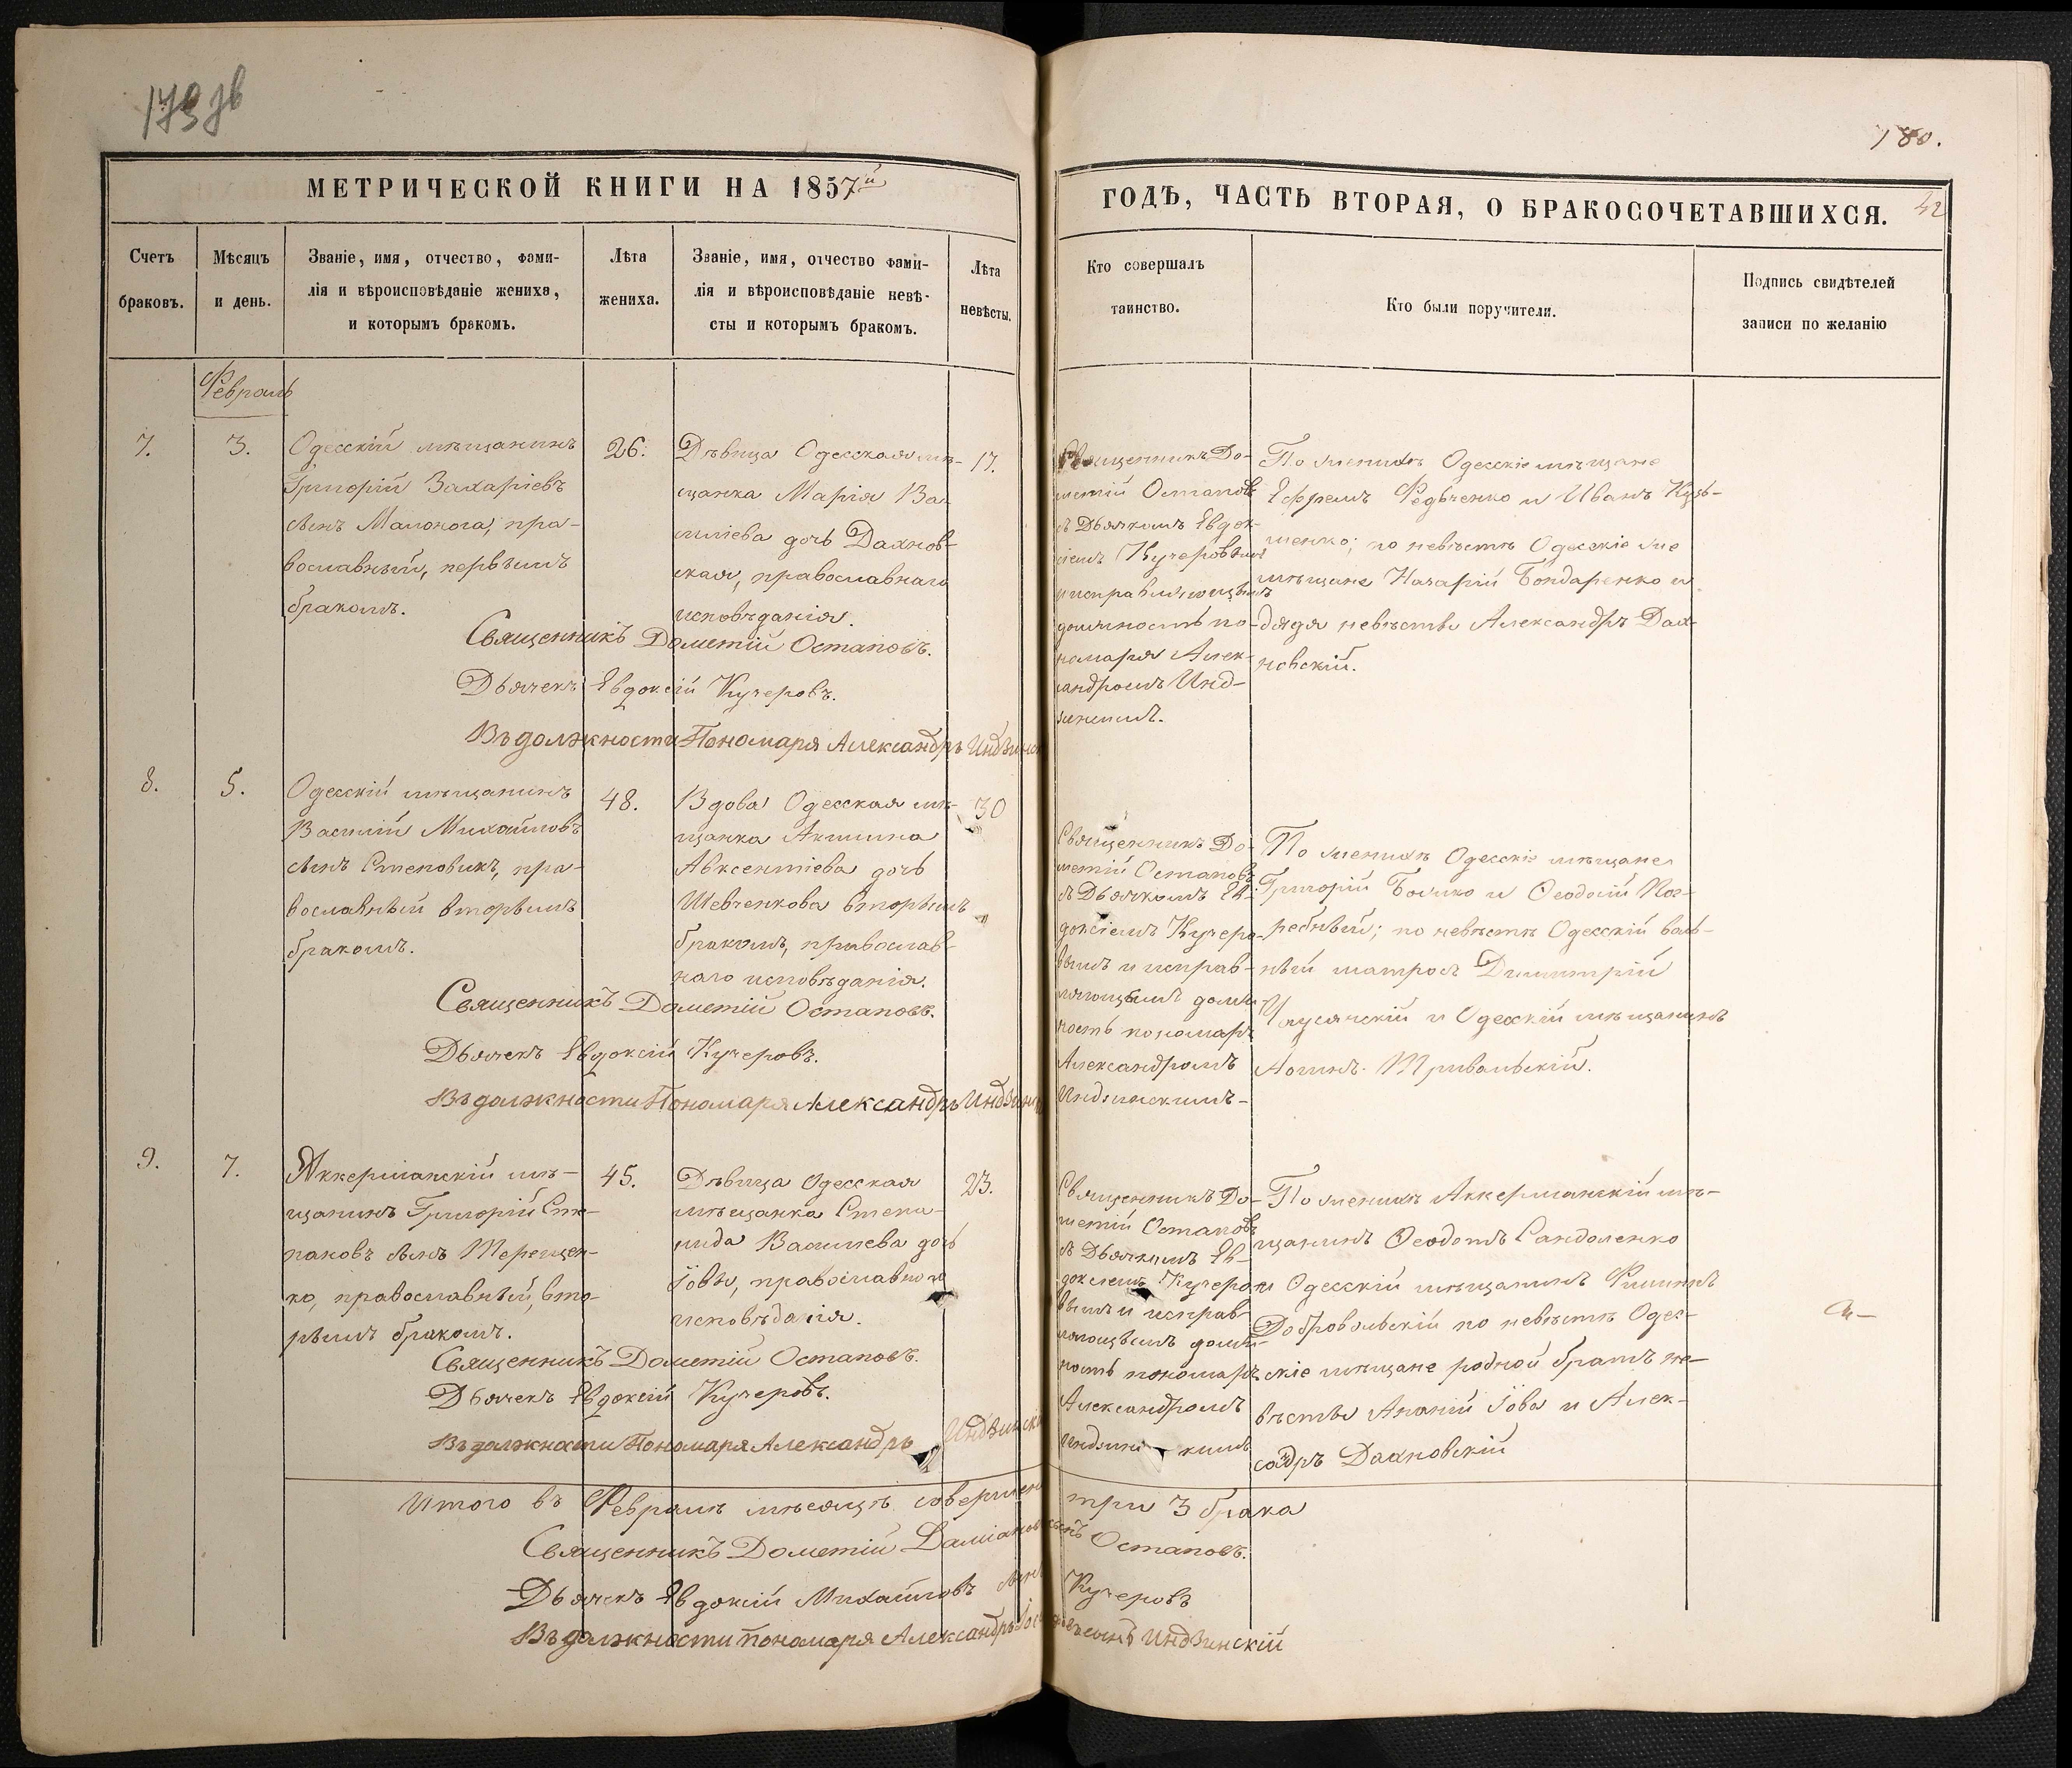 179 зв
180.
МЕТРИЧЕСКОЙ КНИГИ НА 1857й
ГОДЪ, ЧАСТЬ ВТОРАЯ, О БРАКОСОЧЕТАВШИХСЯ.
42
Счетъ
браковъ.
Мѣсяцъ
и день.
Званіе, имя, отчество, фами-
лія и вѣроисповѣданіе жениха,
и которымъ бракомъ.
Лѣта
жениха.
Званіе, имя, отчество фами-
лія и вѣроисповѣданіе невѣ-
сты и которымъ бракомъ.
Лѣта
невѣсты.
Кто совершалъ
таинство.
Кто были поручители.
Подпись свидѣтелей
записи по желанію
Февраль
7.
3.
Одесскій мѣщанинъ
Григорій Захаріевъ
сынъ Малонога, пра-
вославный, первымъ
бракомъ.
26.
Дѣвица Одесская мѣ-
щанка Марія Ва-
силіева дочь Дахнов-
ская, православнаго
исповѣданія.
17.
Священникъ До-
метій Остаповъ
съ Дьячкомъ Евдок-
сіемъ Кучеровымъ
и исправляющимъ
должность по-
номаря Алек-
сандромъ Инд-
По женихѣ Одесскіе мѣщане
Ефремъ Федьченко и Иванъ Кузь-
менко; по невѣстѣ Одесскіе же
мѣщане Назарій Бондаренко и
дядя невѣсты Александръ Дах-
новскій.
Священникъ Дометій Остаповъ.
Дьячекъ Евдоксій Кучеровъ.
Въ должности Пономаря Александръ Индзинск
8.
5.
Одесскій мѣщанинъ
Василій Михайловъ
сынъ Степовикъ, пра-
вославный вторымъ
бракомъ.
48.
Вдова Одесская мѣ-
щанка Акилина
Авксентіева дочь
Шевченкова вторымъ
бракомъ, православ-
наго исповѣданія.
30
Священникъ До-
метій Остаповъ
съ Дьячкомъ Ев-
доксіемъ Кучеро-
вымъ и исправ-
ляющимъ долж-
ность пономаря
Александромъ
Индзинскимъ-
По женихѣ Одесскіе мѣщане
Григорій Божко и Ѳеодосій Пог-
ребный; по невѣстѣ Одесскій воль-
ный матросъ Димитрій
и Одесскій мѣщанинъ
Логинъ Тривольскій.
Священникъ Дометій Остаповъ.
Дьячекъ Евдоксій Кучеровъ.
Въ должности Пономаря Александръ Индзинск
9.
7.
Аккерманскій мѣ-
щанинъ Григорій Сте-
пановъ сынъ Терещен-
ко, православный, вто-
рымъ бракомъ.
45.
Дѣвица Одесская
мѣщанка Степа-
нида Васильева дочь
Іовы, православного
исповѣданія.
23.
Священникъ До-
метій Остаповъ
съ Дьячкомъ Ев-
доксіемъ Кучеро-
вымъ и исправ-
ляющимъ долж-
ность пономаря
Александромъ
Индзинскимъ
По женихѣ Аккерманскій мѣ-
щанинъ Ѳеодотъ Сандоленко
и Одесскій мѣщанинъ Филиппъ
Добровольскій по невѣстѣ Одес-
скіе мѣщане родной братъ не-
вѣсты Ананій Іова и Алек-
садръ Дахновскій
Священникъ Дометій Остаповъ.
Дьячекъ Евдоксій Кучеровъ.
Въ должности Пономаря Александръ Индзинскі
Итого въ Февралѣ мѣсяцѣ совершено три 3 брака
Священникъ Дометій Даміановъ сынъ Остаповъ.
Дьячекъ Евдоксій Михайловъ сынъ Кучеровъ
Въ должности пономаря Александръ сынъ Индзинскій